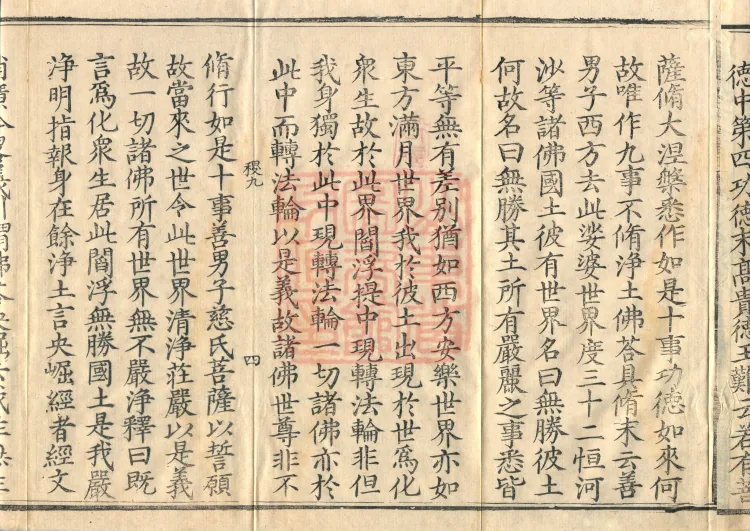 德中第四功德末高貴德王難云卷有菩
薩脩大涅槃悉作如是十事功德如來何
故唯作九事不脩浄土佛荅具脩末云善
男子西方去此娑婆世界度三十二恒河
沙等諸佛國土彼有世界名曰無勝彼土
何故名曰無勝其土所有嚴麗之事悉皆
平等無有差别猶如西方安樂世界亦如
東方滿月世界我於彼土出現於世爲化
衆生故於此界閻浮提中現轉法輪非但
我身獨於此中現轉法輪一切諸佛亦於
此中而轉法輪以是義故諸佛世尊非不
稷九
四
脩行如是十事善男子慈氏菩薩以誓願
故當來之世令此世界清浄莊嚴以是義
故一切諸佛所有世界無不嚴浄釋曰既
言爲化衆生居此閻浮無勝國土是我嚴
浄明指報身在餘浄土言央崛經者經文